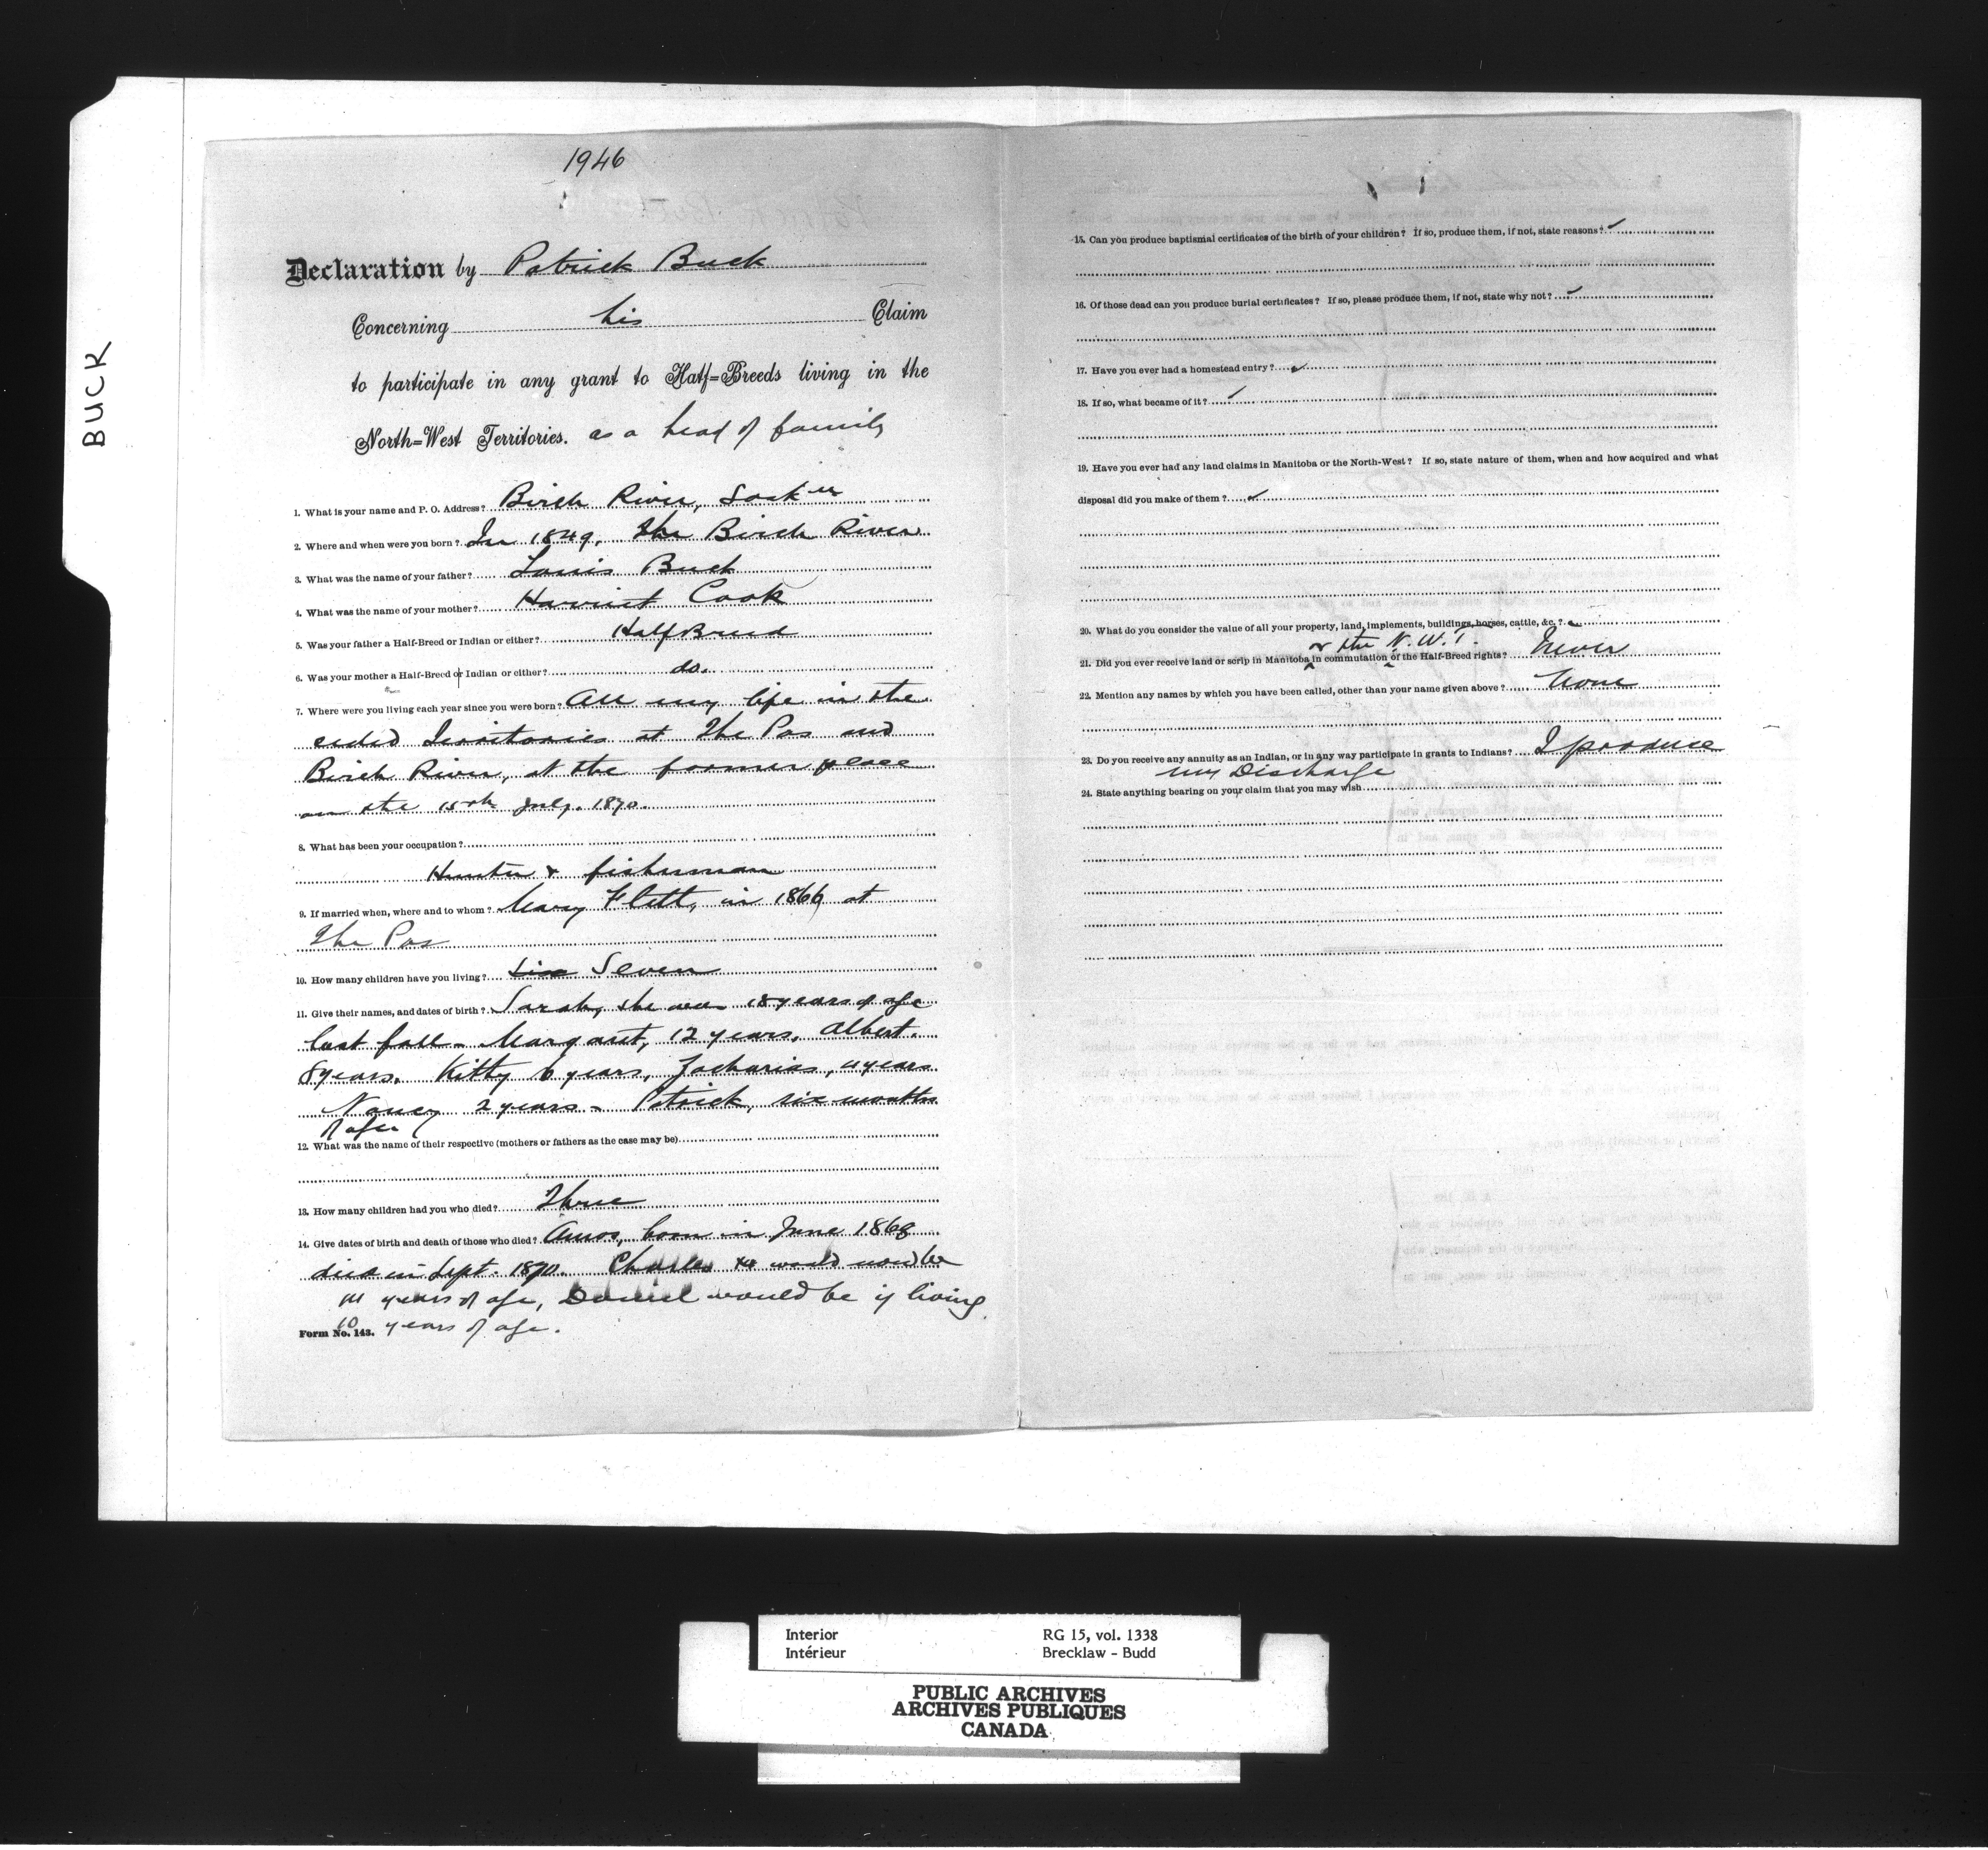 BUCK
1946
Declaration by Patrick Buck
Concerning his Claim
to participate in any grant to Half-Breeds living in the
North-West Territories. as a head of family
1. What is your name and P. O. Address? Birch River, Sask
2. Where and when were you born? In 1849, The Birch River
3. What was the name of your father? Louis Buck
4. What was the name of your mother? Harriet Cook
5. Was your father a Half-Breed or Indian or either? Half Breed
6. Was your mother a Half-Breed or Indian or either? do.
7. Where were you living each year since you were born? All my life in the
ceded Territories at The Pas and
Birch River, at the former place
on the 15th July. 1870.
8. What has been your occupation?
Hunter & fisherman
9. If married when, where and to whom? Mary Flett, in 1866 at
The Pas
10. How many children have you living? Six Seven
11. Give their names, and dates of birth? Sarah, she was 18 years of age
last fall - Margaret, 12 years, Albert.
8 years. Kitty 6 years, Zacharias, 4 years
Nancy 2 years - Patrick, six months
of age
12. What was the name of their respective (mothers or fathers as the case may be)
13. How many children had you who died? Three
14. Give dates of birth and death of those who died? Amos, born in June 1868
died in Sept. 1870. Charles would now be
14 years of age, Daniel would be if living
10 years of age.
Form No. 143.
15. Can you produce baptismal certificates of the birth of your children? If so, produce them, if not, state reasons?
16. Of those dead can you produce burial certificates? If so, please produce them, if not, state why not?
17. Have you ever had a homestead entry?
18. If so, what became of it?
19. Have you ever had any land claims in Manitoba or the North-West? If so, state nature of them, when and how acquired and what
disposal did you make of them?
20. What do you consider the value of all your property, land, implements, buildings, horses, cattle, &c.?
or the N.W.T.
21. Did you ever receive land or scrip in Manitoba in commutation of the Half-Breed rights? Never
22. Mention any names by which you have been called, other than your name given above? None
23. Do you receive any annuity as an Indian, or in any way participate in grants to Indians? I produce
my Discharge
24. State anything bearing on your claim that you may wish
Interior RG 15, vol. 1338
Intérieur Brecklaw - Budd
PUBLIC ARCHIVES
ARCHIVES PUBLIQUES
CANADA